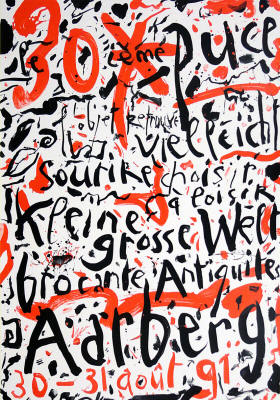 30
le ème puce
l'objet retrouvé
vielleicht
sourire choisir
kleine
grosse Welt
brocante Antiquités
Aarberg
30-31 août 91